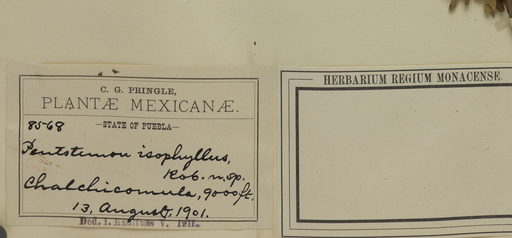 C. G. PRINGLE,
PLANTÆ MEXICANÆ.
8568
—STATE OF PUEBLA—
Pentstemon isophyllus,
Rob. n. sp.
Chalchicomula, 9000 ft.
13, August, 1901.
Ded. I. V. 1911.
HERBARIUM REGIUM MONACENSE.